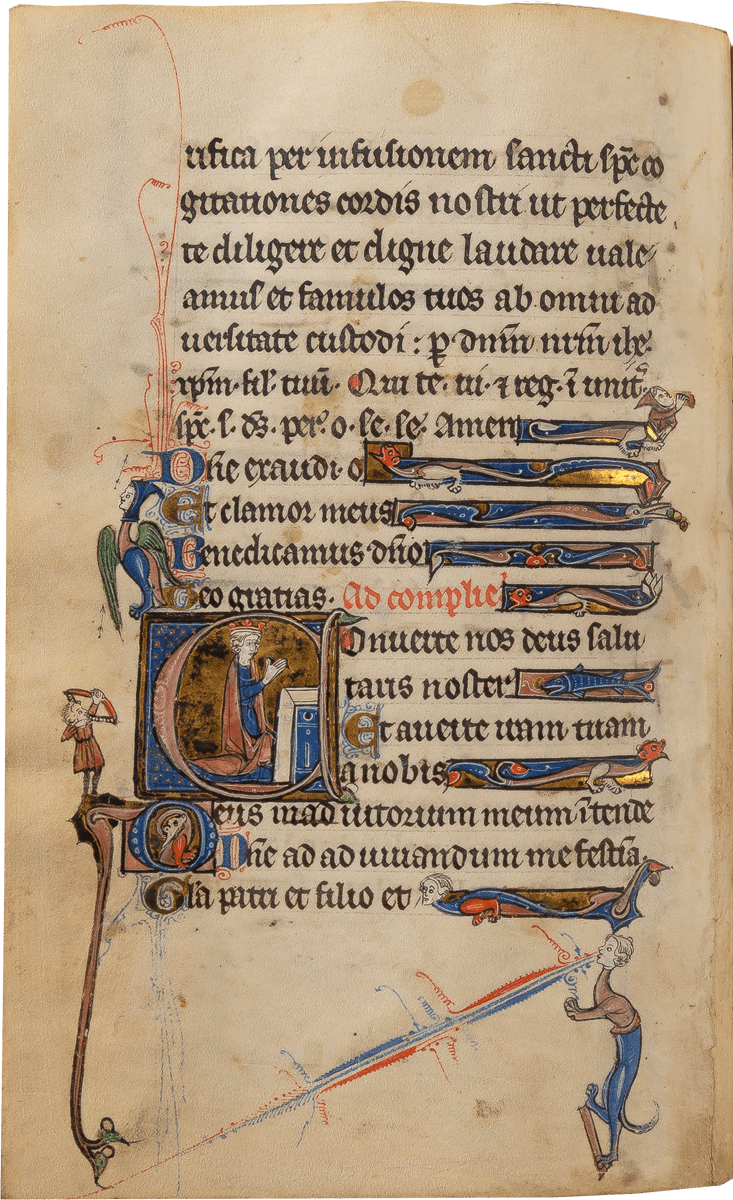 rifica per infusionem sancti spc co
gitationes cordis nostri ut perfecte
te diligere et digne laudare uale
amus et famulos tuos ab omni ad
uersitate custodi : p dnm nrm ihe.
xpm. fil. tuu. Qui te. ui. ⁊ reg. i unit.
spc. s. ds. per. o. se. se. Amen
Dne exaudi o
Et clamor meus
Benedicamus dno
Deo gratias. Ad complie
Conuerte nos deus salu
taris noster
Et auerte iram tuam
a nobis
Deus in ad iutorium meum itende
Dne ad ad iuuandum me festina.
Gla patri et filio et